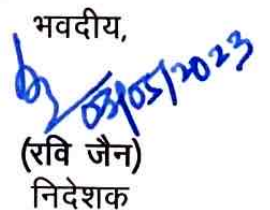 भवदीय,
03/05/2023
(रवि जैन)
निदेशक